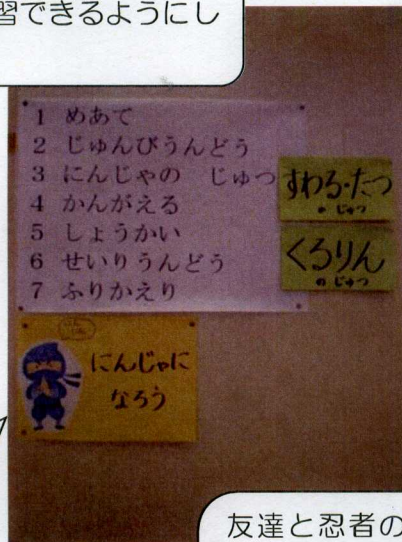 習できるようにし
1 めあて
2 じゅんびうんどう
3 にんじゃの じゅつ
4 かんがえる
5 しょうかい
6 せいりうんどう
7 ふりかえり
すわる・たつ
の じゅつ
くるりん
の じゅつ
にんじゃに
なろう
友達と忍者の